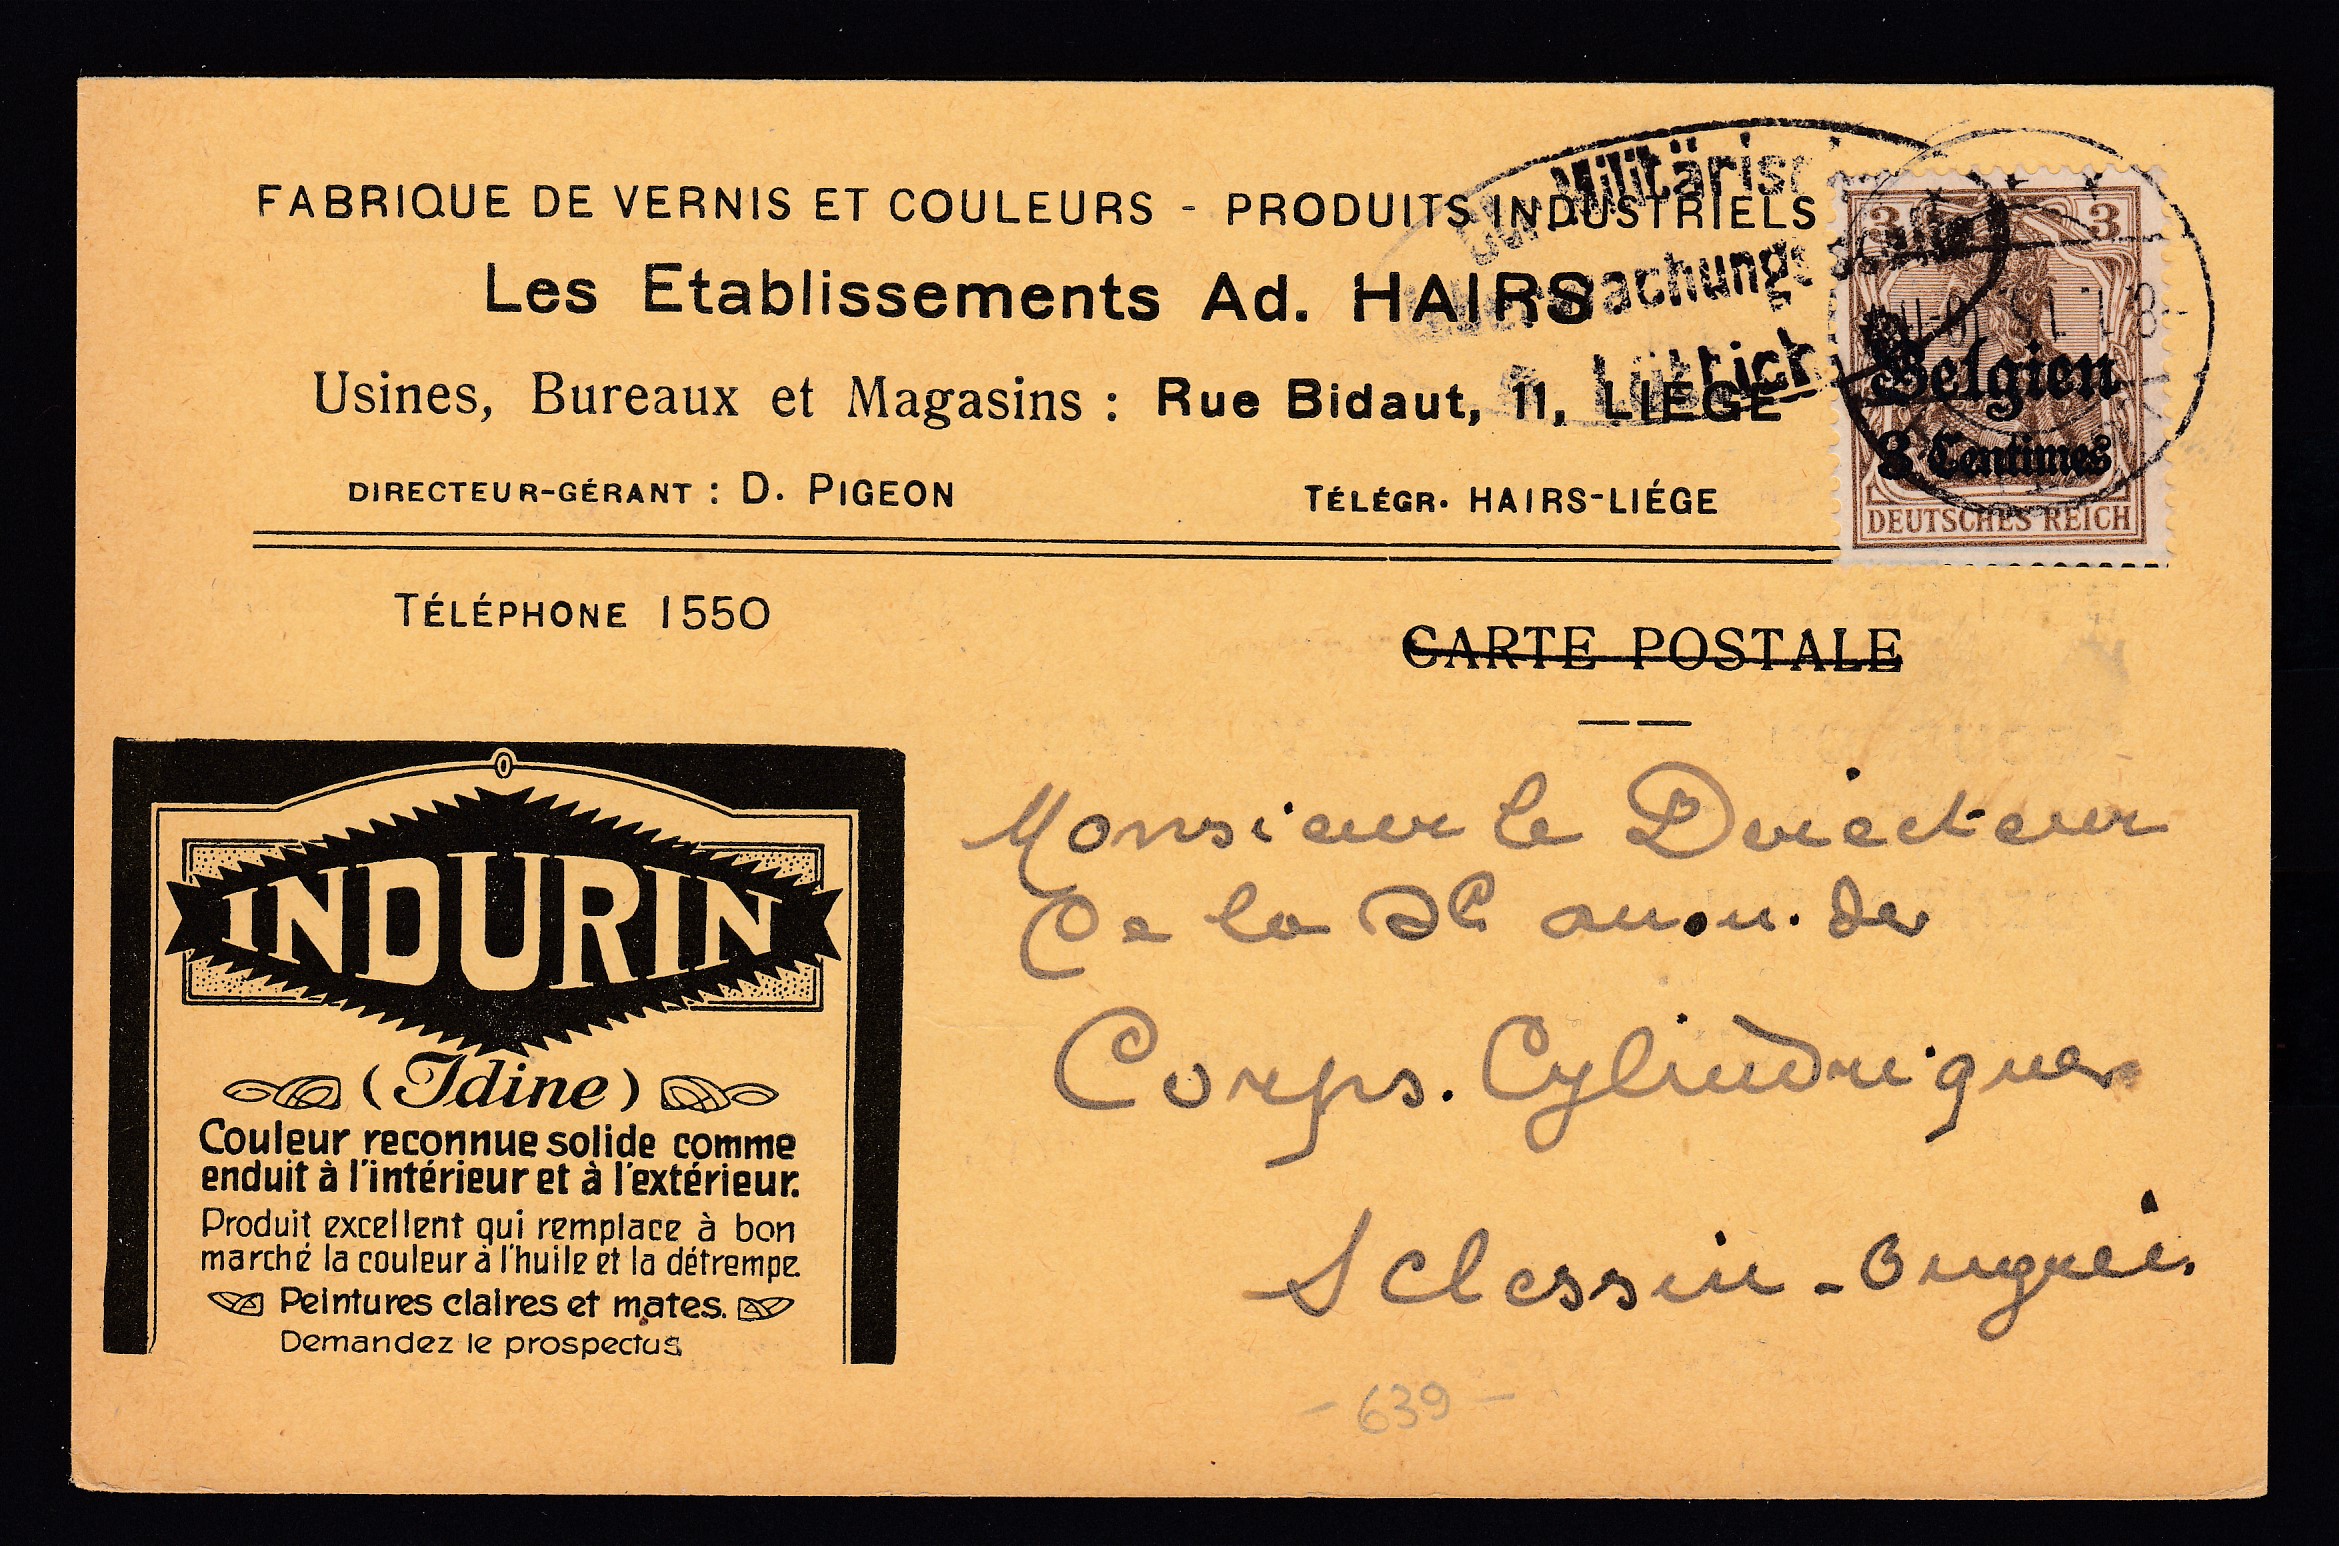 FABRIQUE DE VERNIS ET COULEURS - PRODUITS INDUSTRIELS
Les Etablissements Ad. HAIRS
Usines, Bureaux et Magasins : Rue Bidaut, 11, LIÉGE
DIRECTEUR-GÉRANT : D. PIGEON
TÉLÉGR. HAIRS-LIÉGE
Lüttich
3 3
Belgien
3 Centimes
DEUTSCHES REICH
TÉLÉPHONE 1550
CARTE POSTALE
INDURIN
(Idine)
Couleur reconnue solide comme
enduit à l'intérieur et à l'extérieur.
Produit excellent qui remplace à bon
marché la couleur à l'huile et la détrempe.
Peintures claires et mates.
Demandez le prospectus
Monsieur le Directeur
De la Sté anon. des
Corps. Cylindriques
Sclessin - Ougrée.
- 639 -